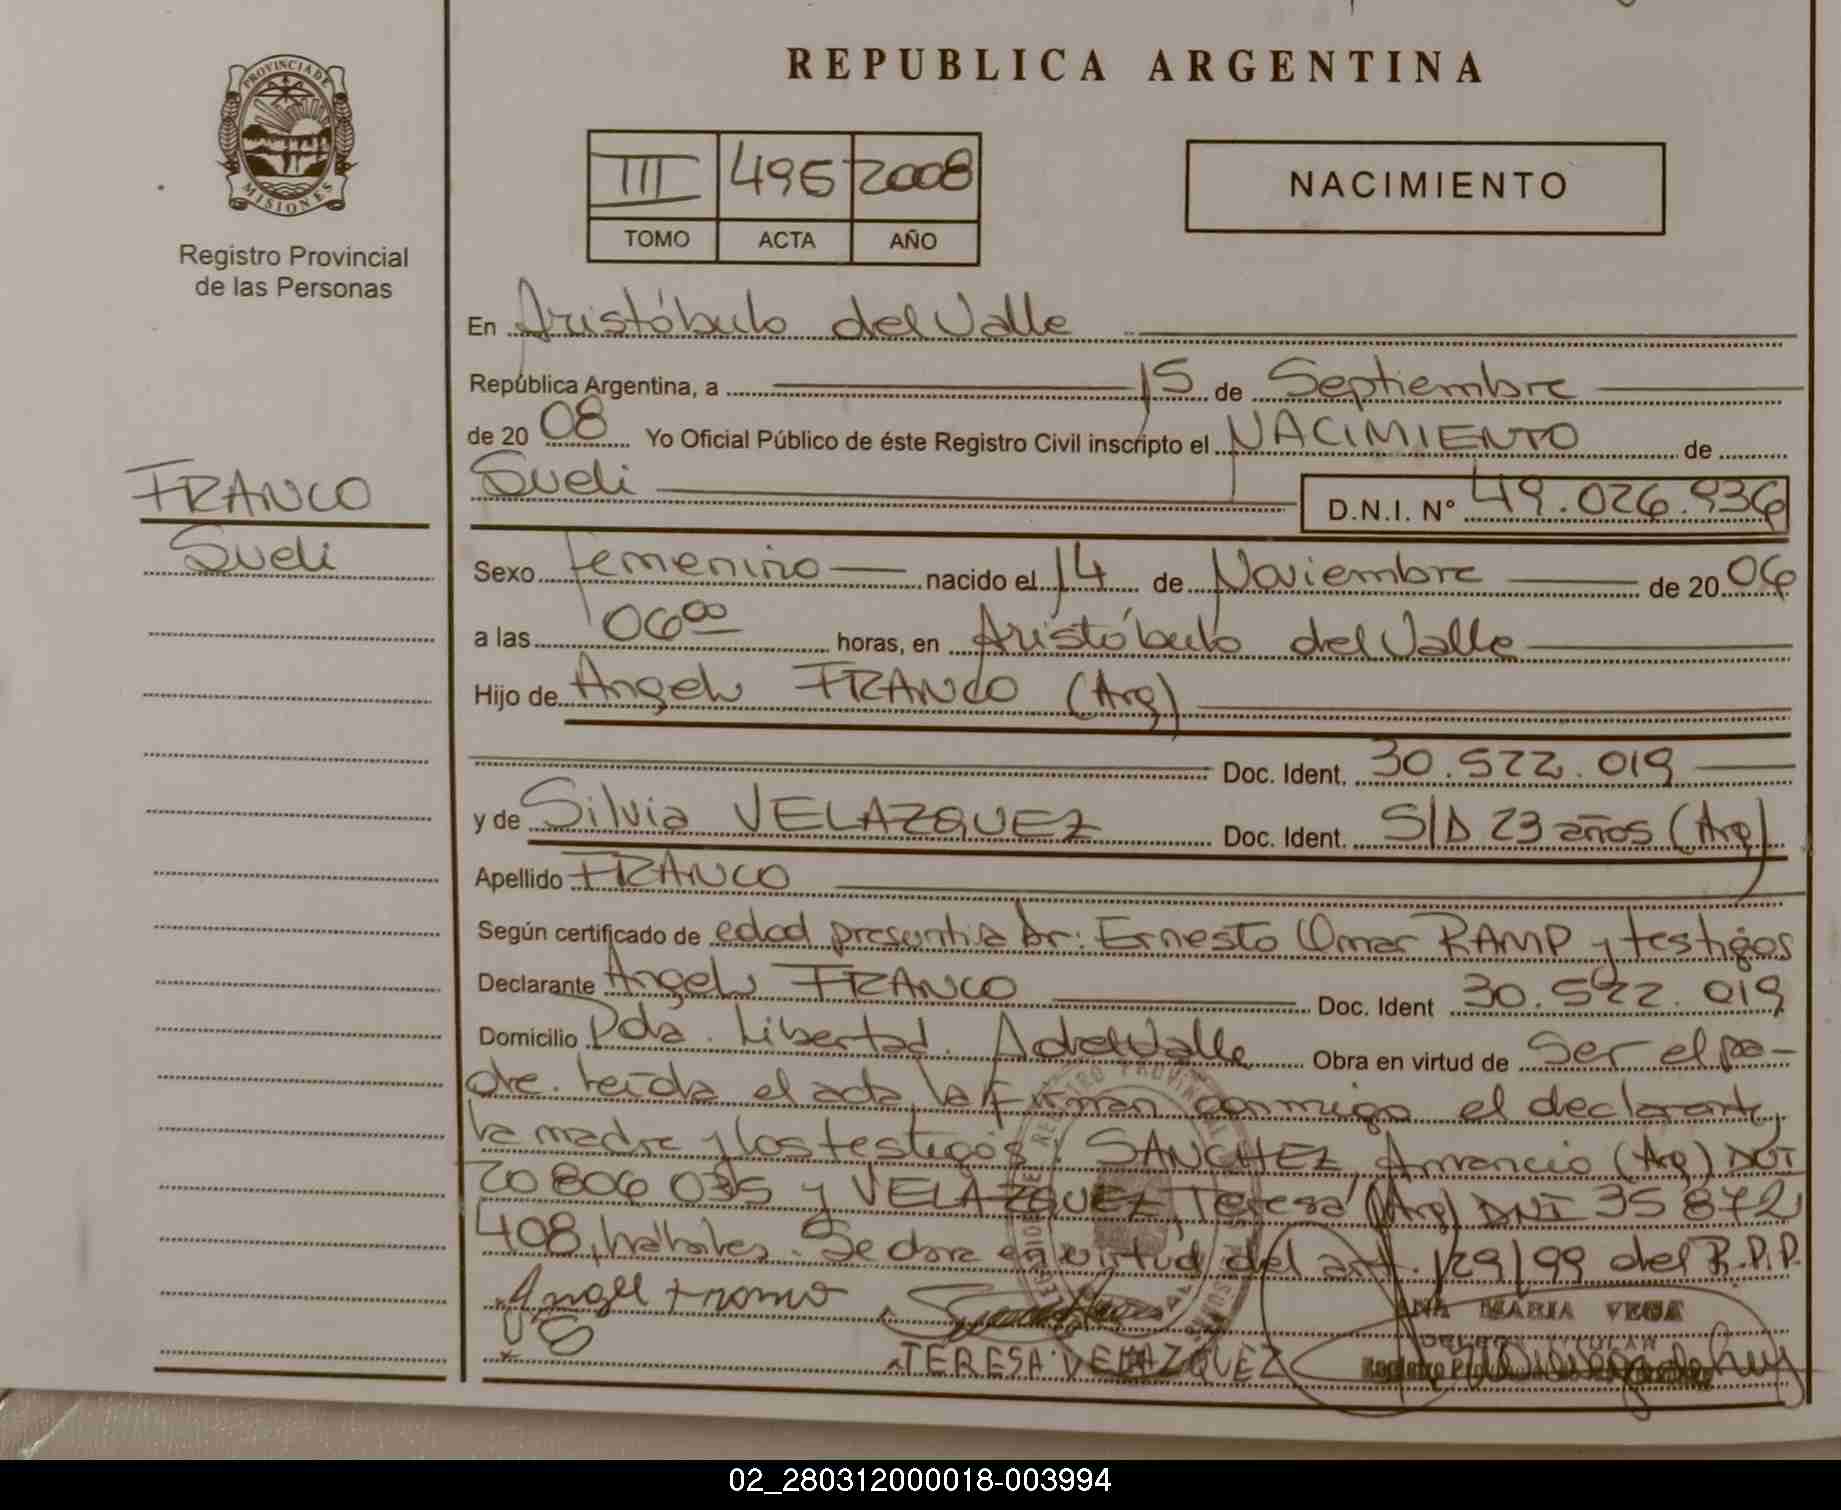 REPUBLICA ARGENTINA
PROVINCIA DE
MISIONES
Registro Provincial
de las Personas
III 495 2008
TOMO ACTA AÑO
NACIMIENTO
En Aristóbulo del Valle
República Argentina, a 15 de Septiembre
de 20 08 Yo Oficial Público de éste Registro Civil inscripto el NACIMIENTO de
FRANCO
Sueli
Sueli D.N.I. N° 49.026.936
Sexo femenino nacido el 14 de Noviembre de 20 06
a las 06 00 horas, en Aristóbulo del Valle
Hijo de Angel FRANCO (Arg)
Doc. Ident. 30.522.019
y de Silvia VELAZQUEZ Doc. Ident. S/D 23 años (Arg)
Apellido FRANCO
Según certificado de edad presuntiva Dr: Ernesto Omar RAMP y testigos
Declarante Angel FRANCO Doc. Ident 30.522.019
Domicilio Pda. Libertad. A del Valle Obra en virtud de Ser el pa-
dre. leída el acta, la firman conmigo el declarante,
la madre y los testigos: SANCHEZ, Amancio (Arg) DNI
20 806 035 y VELAZQUEZ, Teresa (Arg) DNI 35 872
408, hábiles. Se labra en virtud del art. 129/99 del R.P.P.
Angel Franco
TERESA VELAZQUEZ
ANA MARIA VEGA
TITULAR
02_280312000018-003994